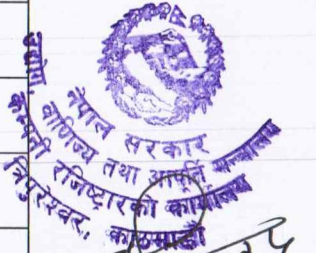 नेपाल सरकार
उद्योग, वाणिज्य तथा आपूर्ति मन्त्रालय
कम्पनी रजिष्ट्रारको कार्यालय
त्रिपुरेश्वर, काठमाडौं